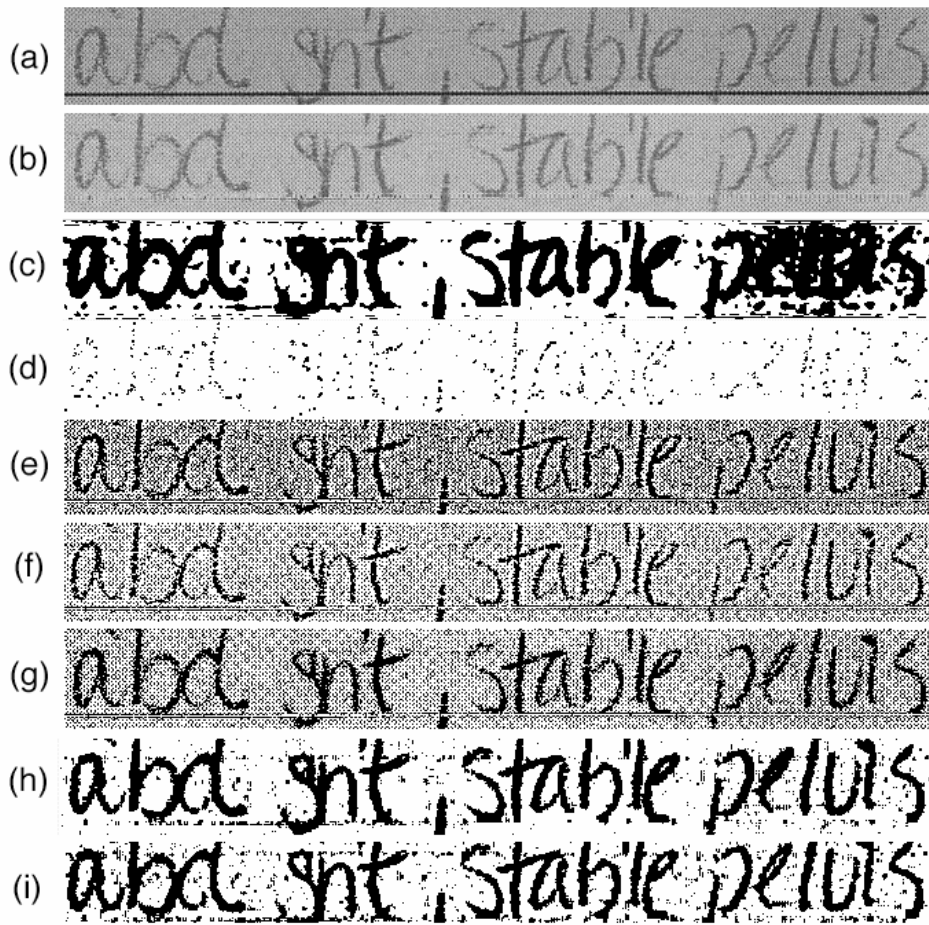 (a) abd gnt, stable pelvis
(b) abd gnt, stable pelvis
(c) abd gnt, stable pelvis
(d) abd gnt, stable pelvis
(e) abd gnt, stable pelvis
(f) abd gnt, stable pelvis
(g) abd gnt, stable pelvis
(h) abd gnt, stable pelvis
(i) abd gnt, stable pelvis